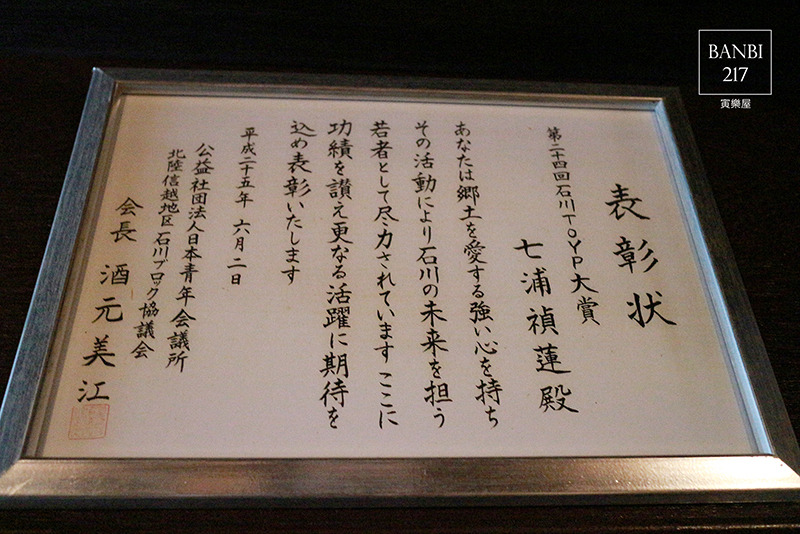 表彰状
第二十四回石川TOYP大賞
七浦禎蓮殿
あなたは郷土を愛する強い心を持ち
その活動により石川の未来を担う
若者として尽力されています ここに
功績を讃え更なる活躍に期待を
込め表彰いたします
平成二十五年 六月二日
公益社団法人日本青年会議所
北陸信越地区 石川ブロック協議会
会長 酒元美江
BANBI
217
寅樂屋